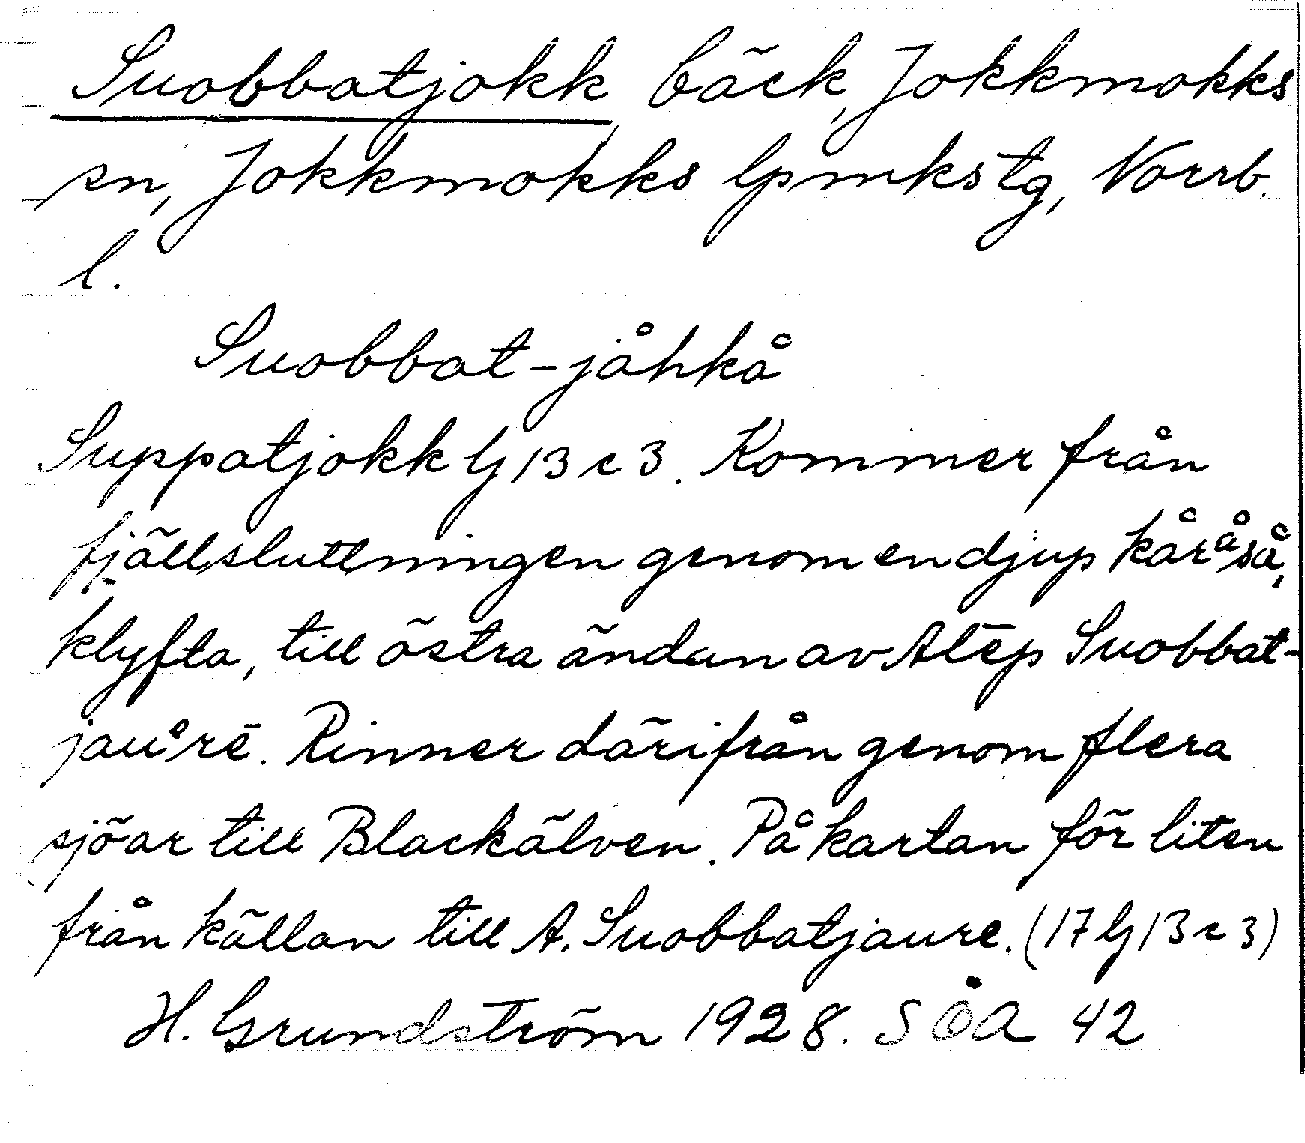 Suobbatjokk bäck, Jokkmokks
sn, Jokkmokks lpmkstg, Norrb.
l.
Suobbat-jåhkå
Suppatjokk lj 13 c 3. Kommer från
fjällsluttningen genom en djup kåråså,
klyfta, till östra ändan av Alēp Suobbat-
jauᵒrē. Rinner därifrån genom flera
sjöar till Blackälven. På kartan för liten
från källan till A. Suobbatjaure. (17 lj 13 c 3)
H. Grundström 1928. SOA 42